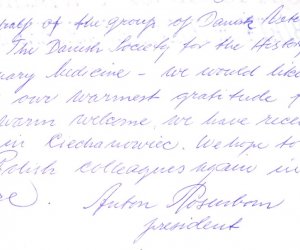 half of the group of Danish
The Danish Society for the Histo
nary Medicine - we would like
our warmest gratitude
warm welcome we have rece
in Ciechanowiec. We hope to
Polish colleagues again in
Anton Rosenbom
president